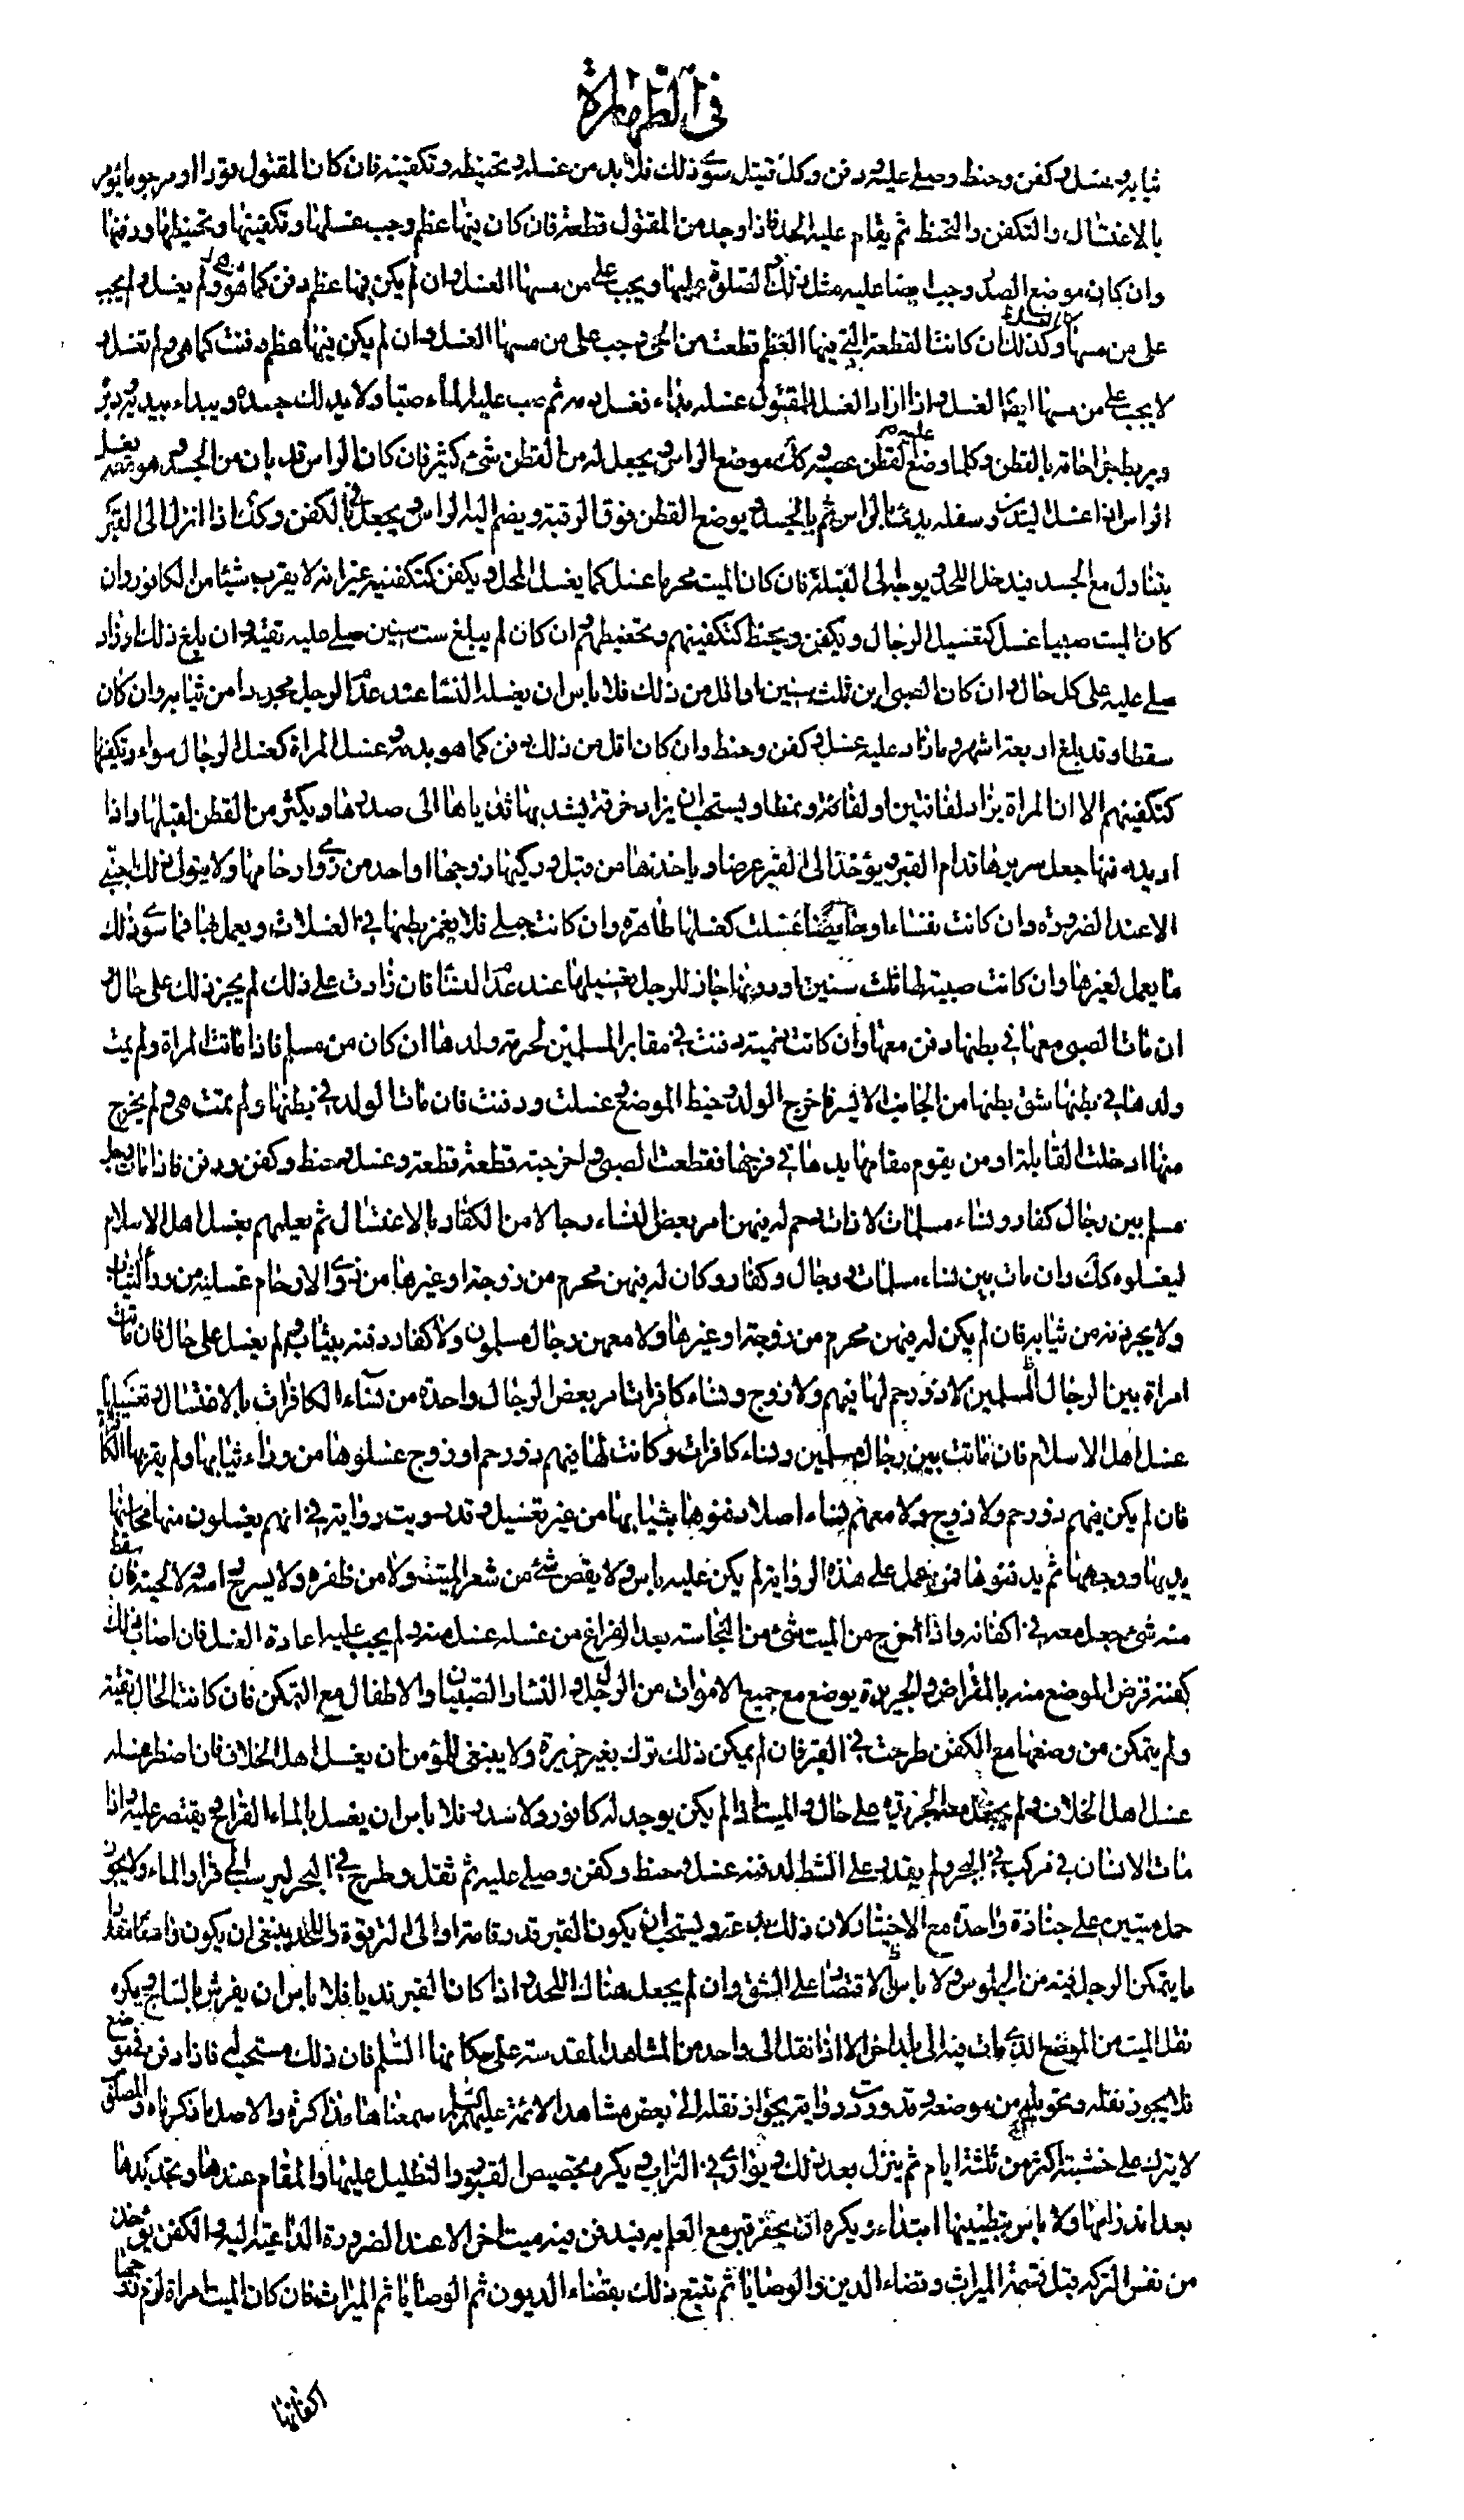 في الطهارة
ثيابه وغسل وكفن وحنط وصلي عليه ودفن وكل قتيل سوى ذلك فلا بد من غسله وتحنيطه وتكفينه فان كان المقتول قودا او مرجوما يؤمر
بالاغتسال والتكفن والتحنط ثم يقام عليه الحد فاذا وجد من المقتول قطعة فان كان فيها عظم وجب غسلها وتكفينها وتحنيطها ودفنها
وان كان موضع الصدر وجب ايضا عليه مثل ذلك الصلوة عليها ويجب على من مسها الغسل وان لم يكن فيها عظم دفن كما هو ولم يغسل ولم يجب
على من مسها الغسل وكذلك ان كانت القطعة التي فيها العظم قطعت من الحي وجب على من مسها الغسل وان لم يكن فيها عظم دفنت كما هي ولم تغسل و
لا يجب على من مسها ايضا الغسل واذا اراد الغسل المقتول غسله بداء فغسل دمه ثم صب عليه الماء صبا ولا يدلك جسده ويبداء بيديه ودبره
ويربط جراحاته بالقطن وكلما وضع عليه القطن عصبه وكك موضع الراس ويجعل له من القطن شئ كثير فان كان الراس قد بان من الجسد وهو معه يغسل
الراس اذا غسل اليدين وسفله بدء بالراس ثم بالجسد ويوضع القطن فوق الرقبة ويضم اليه الراس ويجعل في الكفن وكك اذا انزل الى القبر
يتناول مع الجسد فيدخل اللحد ويوجه الى القبلة فان كان الميت محرما غسل كما يغسل المحل ويكفن كتكفينه غير انه لا يقرب شيئا من الكافور وان
كان الميت صبيا غسل كتغسيل الرجال ويكفن ويحنط كتكفينهم وتحنيطهم وان كان لم يبلغ ست سنين صلي عليه تقية وان بلغ ذلك او زاد
صلي عليه على كل حال وان كان الصبي ابن ثلث سنين او اقل من ذلك فلا باس ان يغسله النساء عند عدم الرجل مجردا من ثيابه وان كان
سقطا وقد بلغ اربعة اشهر وما زاد عليه غسل وكفن وحنط وان كان اقل من ذلك دفن كما هو بدمه وغسل المراة كغسل الرجال سواء وتكفينها
كتكفينهم الا ان المراة يزاد لفافتين او لفافة ونمطا ويستحب ان يزاد خرقة يشد بها ثدياها الى صدرها ويكثر من القطن لقبلها واذا
اريد دفنها جعل سريرها قدام القبر ويؤخذ الى القبر عرضا وياخذها من قبل وركيها زوجها او احد من ذوي ارحامها ولا يتولى ذلك اجنبي
الا عند الضرورة وان كانت نفساء او حايضا غسلت كغسلها طاهرة وان كانت حبلى فلا يغمز بطنها في الغسلات ويعمل بها فما سوى ذلك
ما يعمل لغيرها وان كانت صبية لها ثلث سنين او دونها جاز للرجل تغسيلها عند عدم النساء فان زادت على ذلك لم يجز ذلك على حال و
ان مات الصبي معها في بطنها دفن معها وان كانت ذمية دفنت في مقابر المسلمين لحرمة ولدها ان كان من مسلم فاذا ماتت المراة ولم يمت
ولدها في بطنها شق بطنها من الجانب الايسر واخرج الولد وخيط الموضع وغسلت ودفنت فان مات الولد في بطنها ولم تمت هي ولم يخرج
منها ادخلت القابلة او من يقوم مقامها يدها في فرجها فقطعت الصبي واخرجته قطعة قطعة وغسل وحنط وكفن ودفن فاذا مات رجل
مسلم بين رجال كفار ونساء مسلمات لا ذات رحم له فيهن امر بعض النساء رجالا من الكفار بالاغتسال ثم يعلمهم بغسل اهل الاسلام
ليغسلوه كك وان مات بين نساء مسلمات ورجال وكفار وكان له فيهن محرم من زوجة او غيرها من ذوي الارحام غسلنه من وراء الثياب
ولا يجردنه من ثيابه فان لم يكن له فيهن محرم من زوجة او غيرها ولا معهن رجال مسلمون ولا كفار دفنه بثيابه ولم يغسل على حال فان ماتت
امراة بين الرجال المسلمين لا ذو رحم لها فيهم ولا زوج ونساء كافرات امر بعض الرجال واحدة من نساء الكافرات بالاغتسال وتغسيلها
غسل اهل الاسلام فان ماتت بين رجال مسلمين ونساء كافرات وكانت لها فيهم ذو رحم او زوج غسلوها من وراء ثيابها ولم يقربها الكافرة
فان لم يكن فيهم ذو رحم ولا زوج ولا معهم نساء اصلا دفنوها بثيابها من غير تغسيل وقد رويت رواية في انهم يغسلون منها محاسنها
يديها ووجهها ثم يدفنوها فمن عمل على هذه الرواية لم يكن عليه باس ولا يقص شئ من شعر الميت ولا من ظفره ولا يسرح راسه ولا لحيته فان سقط
منه شئ جعل معه في اكفانه واذا خرج من الميت شئ من النجاسة بعد الفراغ من غسله غسل منه ولم يجب عليه اعادة الغسل فان اصاب ذلك
كفنه قرض الموضع منه بالمقراض والجريدة يوضع مع جميع الاموات من الرجال والنساء والصبيان والاطفال مع التمكن فان كانت الحال تقية
ولم يتمكن من وضعها مع الكفن طرحت في القبر فان لم يمكن ذلك ترك بغير جريدة ولا ينبغي للمؤمن ان يغسل اهل الخلاف فان اضطر غسله
غسل اهل الخلاف ولم يجعل معه الجريدة على حال والميت اذا لم يكن يوجد له كافور ولا سدر فلا باس ان يغسل بالماء القراح ويقتصر عليه واذا
مات الانسان في مركب في البحر ولم يقدر على الشط لدفنه غسل وحنط وكفن وصلي عليه ثم ثقل وطرح في البحر ليرسب الى قرار الماء ولا يجوز
حمل ميتين على جنازة واحدة مع الاختيار لان ذلك بدعة ويستحب ان يكون القبر قدر قامة او الى الترقوة واللحد ينبغي ان يكون واسعا مقدار
ما يتمكن الرجل فيه من الجلوس ولا باس بالاقتصار على الشق وان لم يجعل هناك اللحد واذا كان القبر نديا فلا باس ان يفرش بالساج ويكره
نقل الميت من الموضع الذي مات فيه الى بلد اخر الا اذا نقل الى واحد من المشاهد المقدسة على سكانها السلم فان ذلك مستحب له فاذا دفن في موضع
فلا يجوز نقله وتحويله من موضعه وقد وردت رواية بجواز نقله الى بعض مشاهد الائمة عليهم السلم سمعناها مذاكرة والاصل ما ذكرناه والمصلوب
لا يترك على خشبته اكثر من ثلثة ايام ثم ينزل بعد ذلك ويوارى في التراب ويكره تجصيص القبور والتظليل عليها والمقام عندها وتجديدها
بعد اندراسها ولا باس بتطيينها ابتداء ويكره ان يحفر قبر مع العلم به فيدفن فيه ميت اخر الا عند الضرورة الداعية اليه والكفن يؤخذ
من نفس التركة قبل قسمة الميراث وقضاء الدين والوصايا ثم تتبع ذلك بقضاء الديون ثم الوصايا ثم الميراث فان كان الميت امراة لزم زوجها
اكفانها